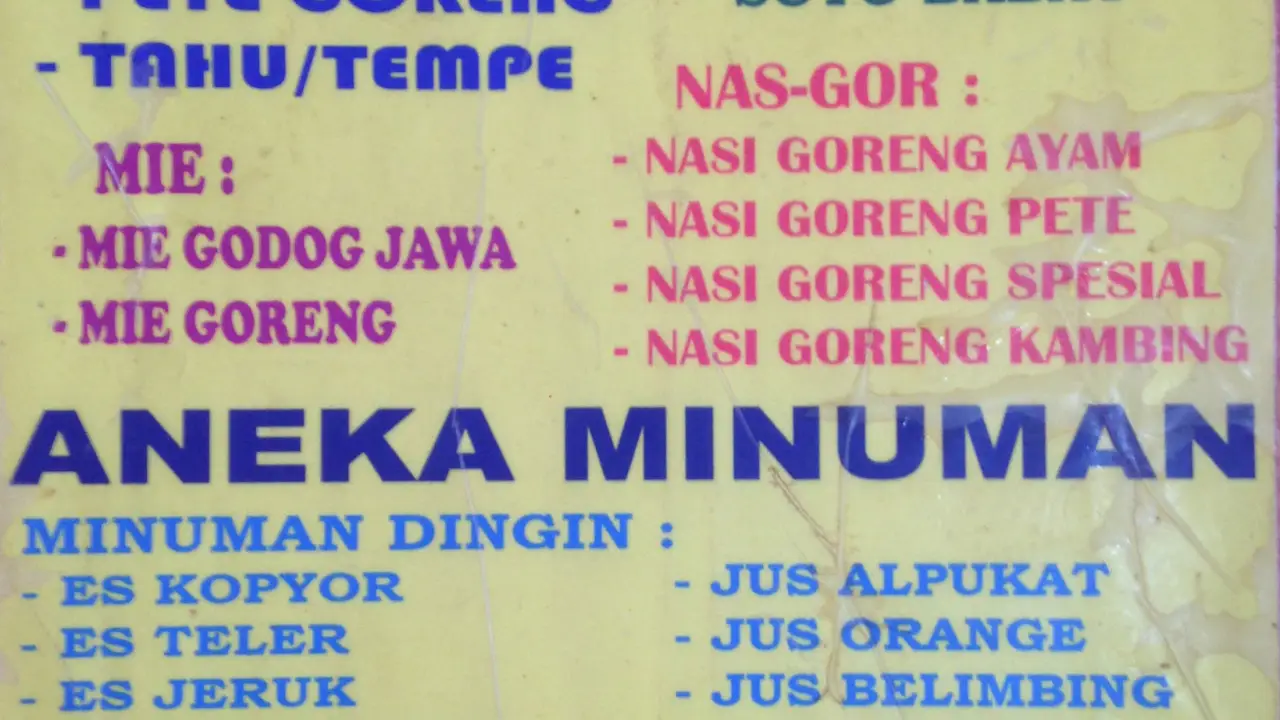 PETE GORENG
- TAHU/TEMPE
MIE :
- MIE GODOG JAWA
- MIE GORENG
NAS-GOR :
- NASI GORENG AYAM
- NASI GORENG PETE
- NASI GORENG SPESIAL
- NASI GORENG KAMBING
ANEKA MINUMAN
MINUMAN DINGIN :
- ES KOPYOR
- ES TELER
- ES JERUK
- JUS ALPUKAT
- JUS ORANGE
- JUS BELIMBING